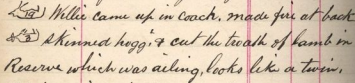 Willie came up in coach, made fire at back
skinned hogg^t & cut the troath of lamb in
Reserve which was ailing, looks like a twin,